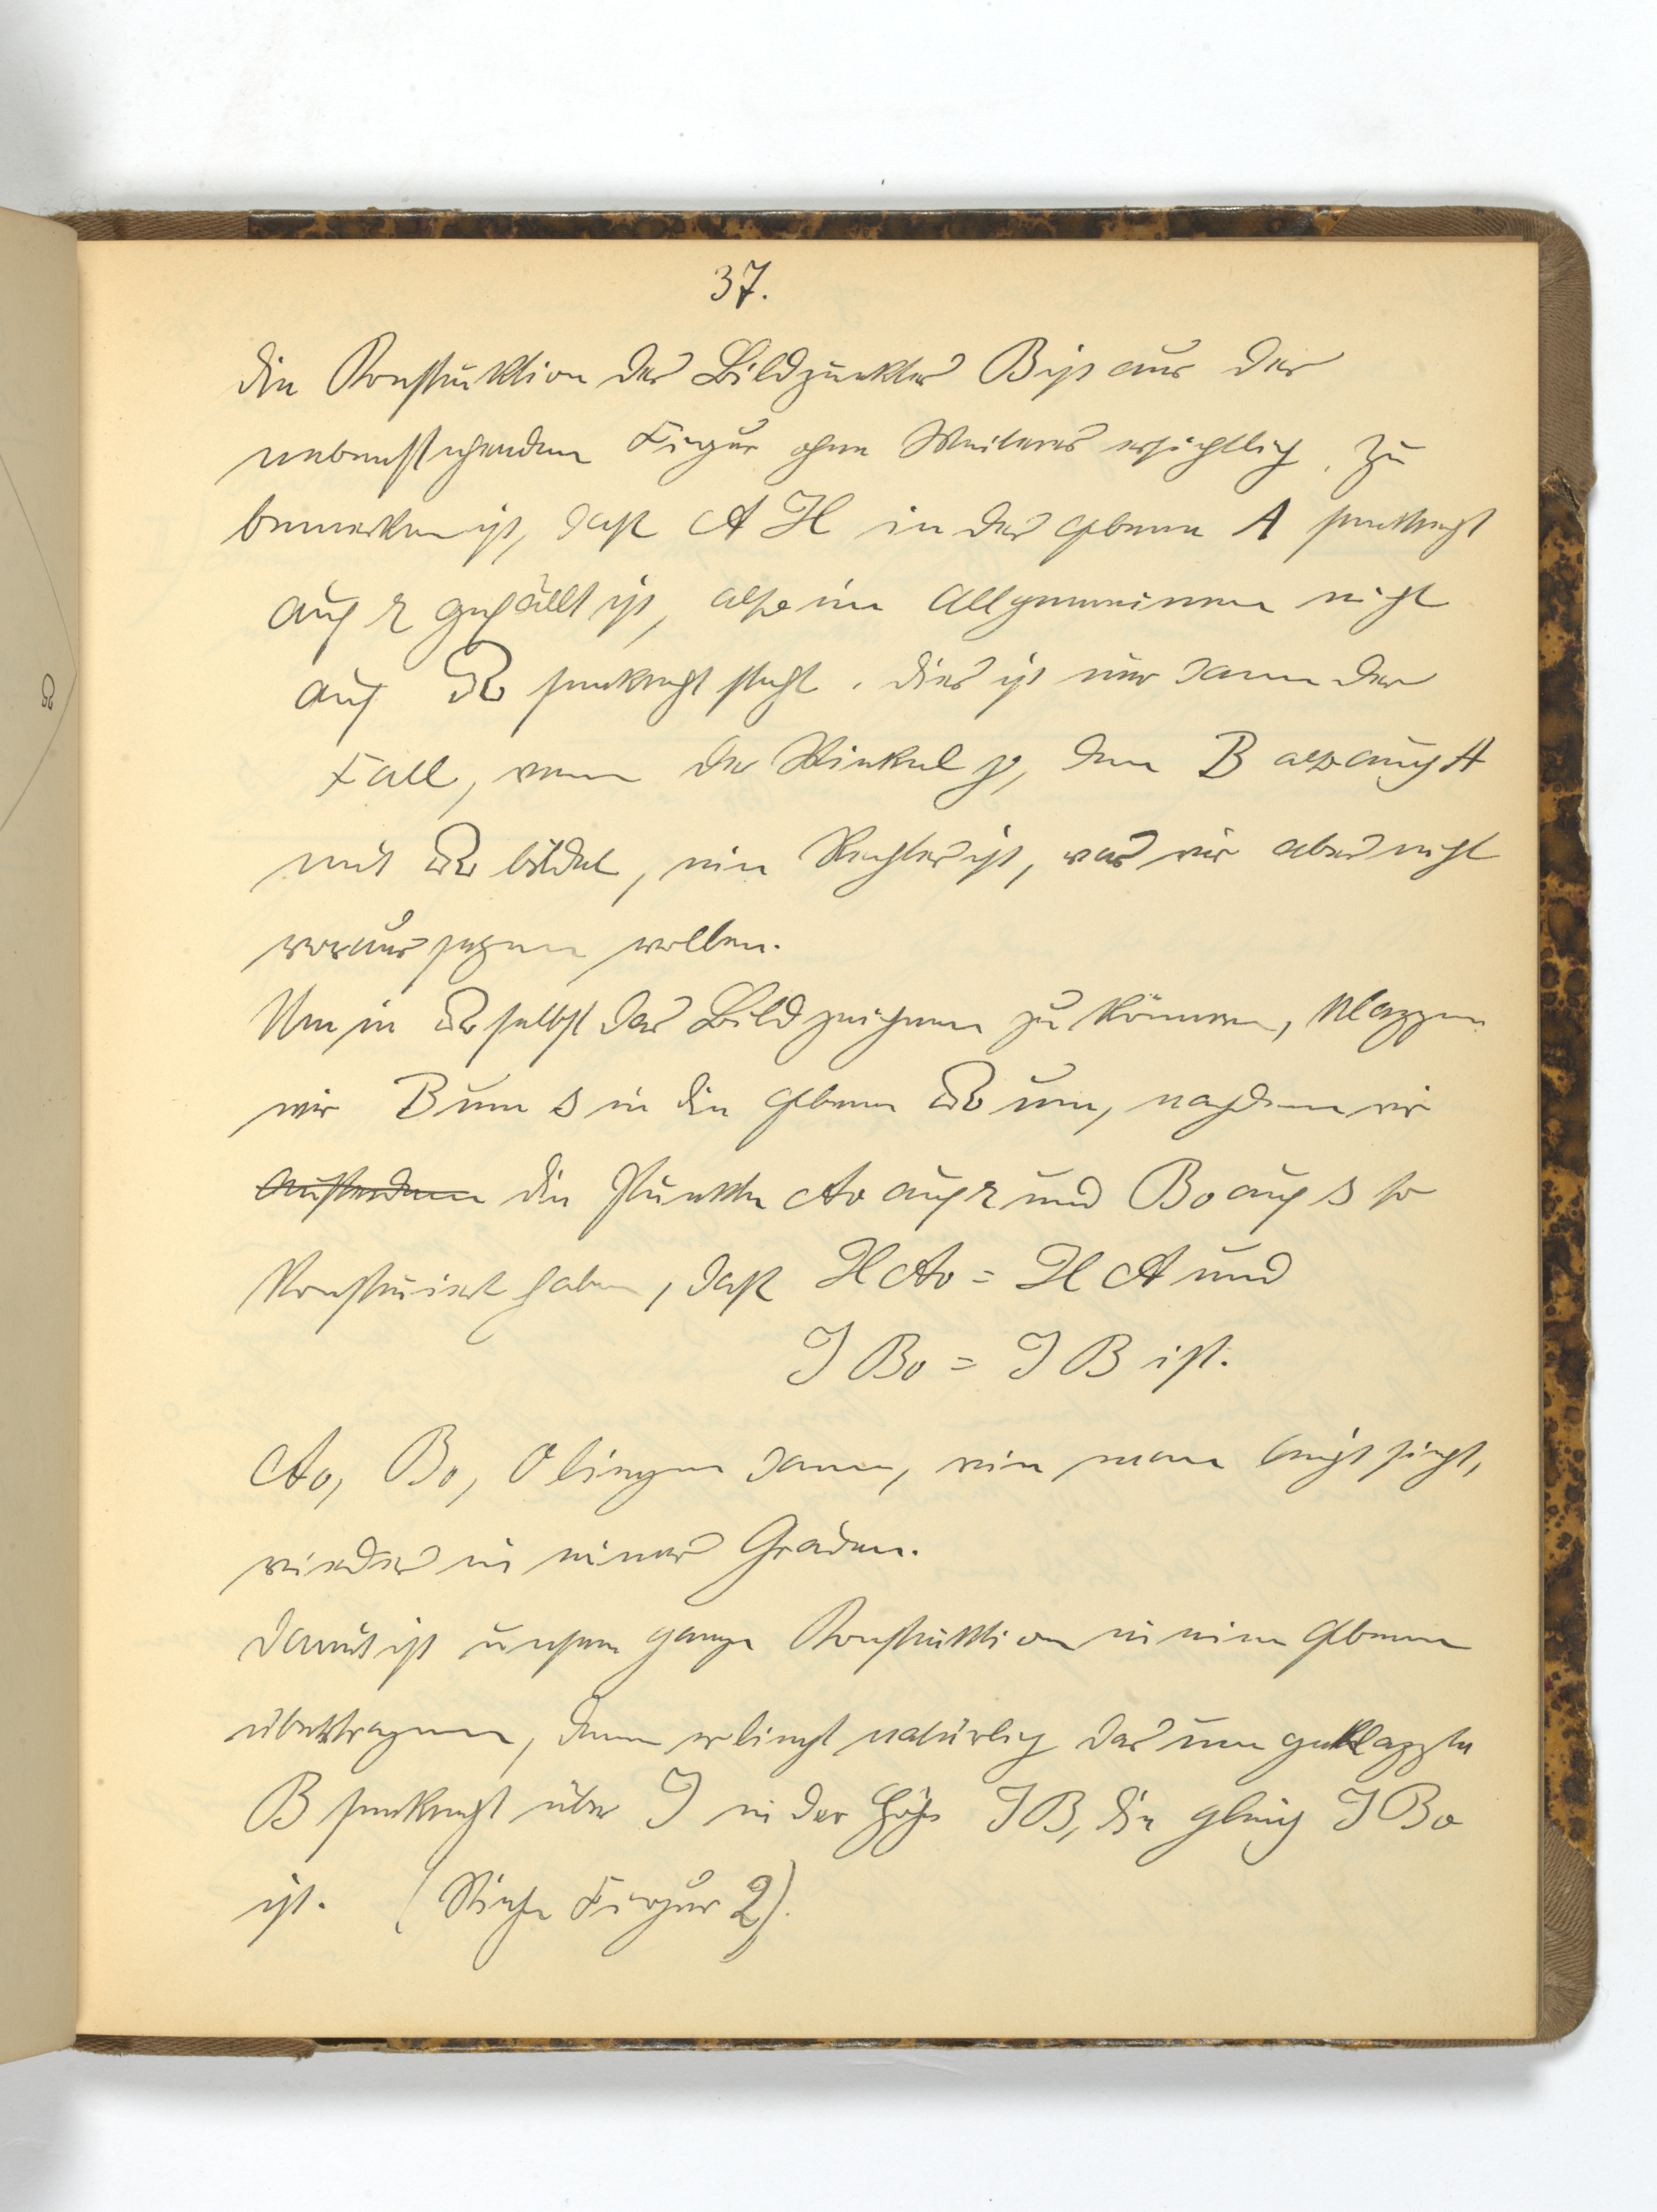 37.
Die Konstruktion des Bildpunktes B ist aus der
nebenstehenden Figur ohne Weiteres ersichtlich. Zu
bemerken ist, daß A H in der Ebene A senkrecht
auf r gefällt ist, also im Allgemeinen nicht
auf Ω senkrecht steht. Dies ist nur dann der
Fall, wenn der Winkel φ, den B also auch A
mit Ω bildet, ein Rechter ist, was wir aber nicht
voraussetzen wollen.
Um in Ω selbst das Bild zeichnen zu können, klappen
wir B um s in die Ebene Ω um, nachdem wir
die Punkte A₀ auf r und B₀ auf s so
konstruiert haben, daß H A₀ = H A und
J B₀ = J B ist.
A₀, B₀, O liegen dann, wie man leicht sieht,
wieder in einer Graden.
Damit ist unsere ganze Konstruktion in eine Ebene
übertragen, denn es liegt natürlich das umgeklappte
B senkrecht über J in der Höhe J B, die gleich J B₀
ist. (Siehe Figur 2).